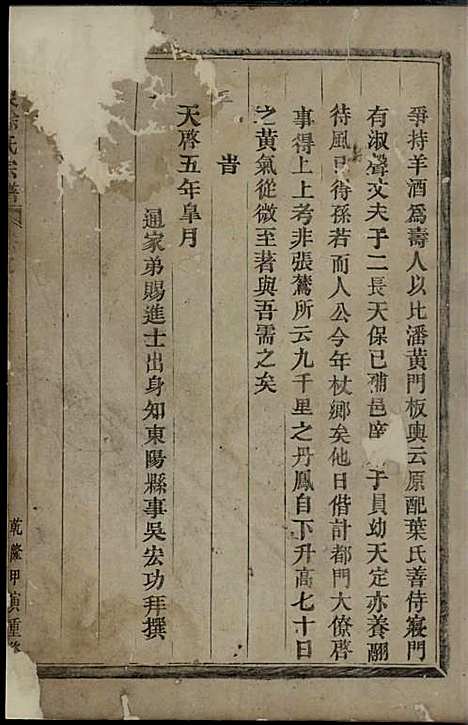 爭持羊酒爲壽人以比潘黃門板輿云原配葉氏善侍寢門
有淑聲丈夫子二長天保已補邑庠 子員幼天定亦養翮
待風已得孫若而人公今年杖鄉矣他日偕計都門大僚啓
事得上上考非張鷟所云九千里之丹鳳自下升高七十日
之黃氣從微至著與吾需之矣
旹
天啓五年皐月
通家弟賜進士出身知東陽縣事吳宏功拜撰
徐氏宗譜
乾隆甲寅重修